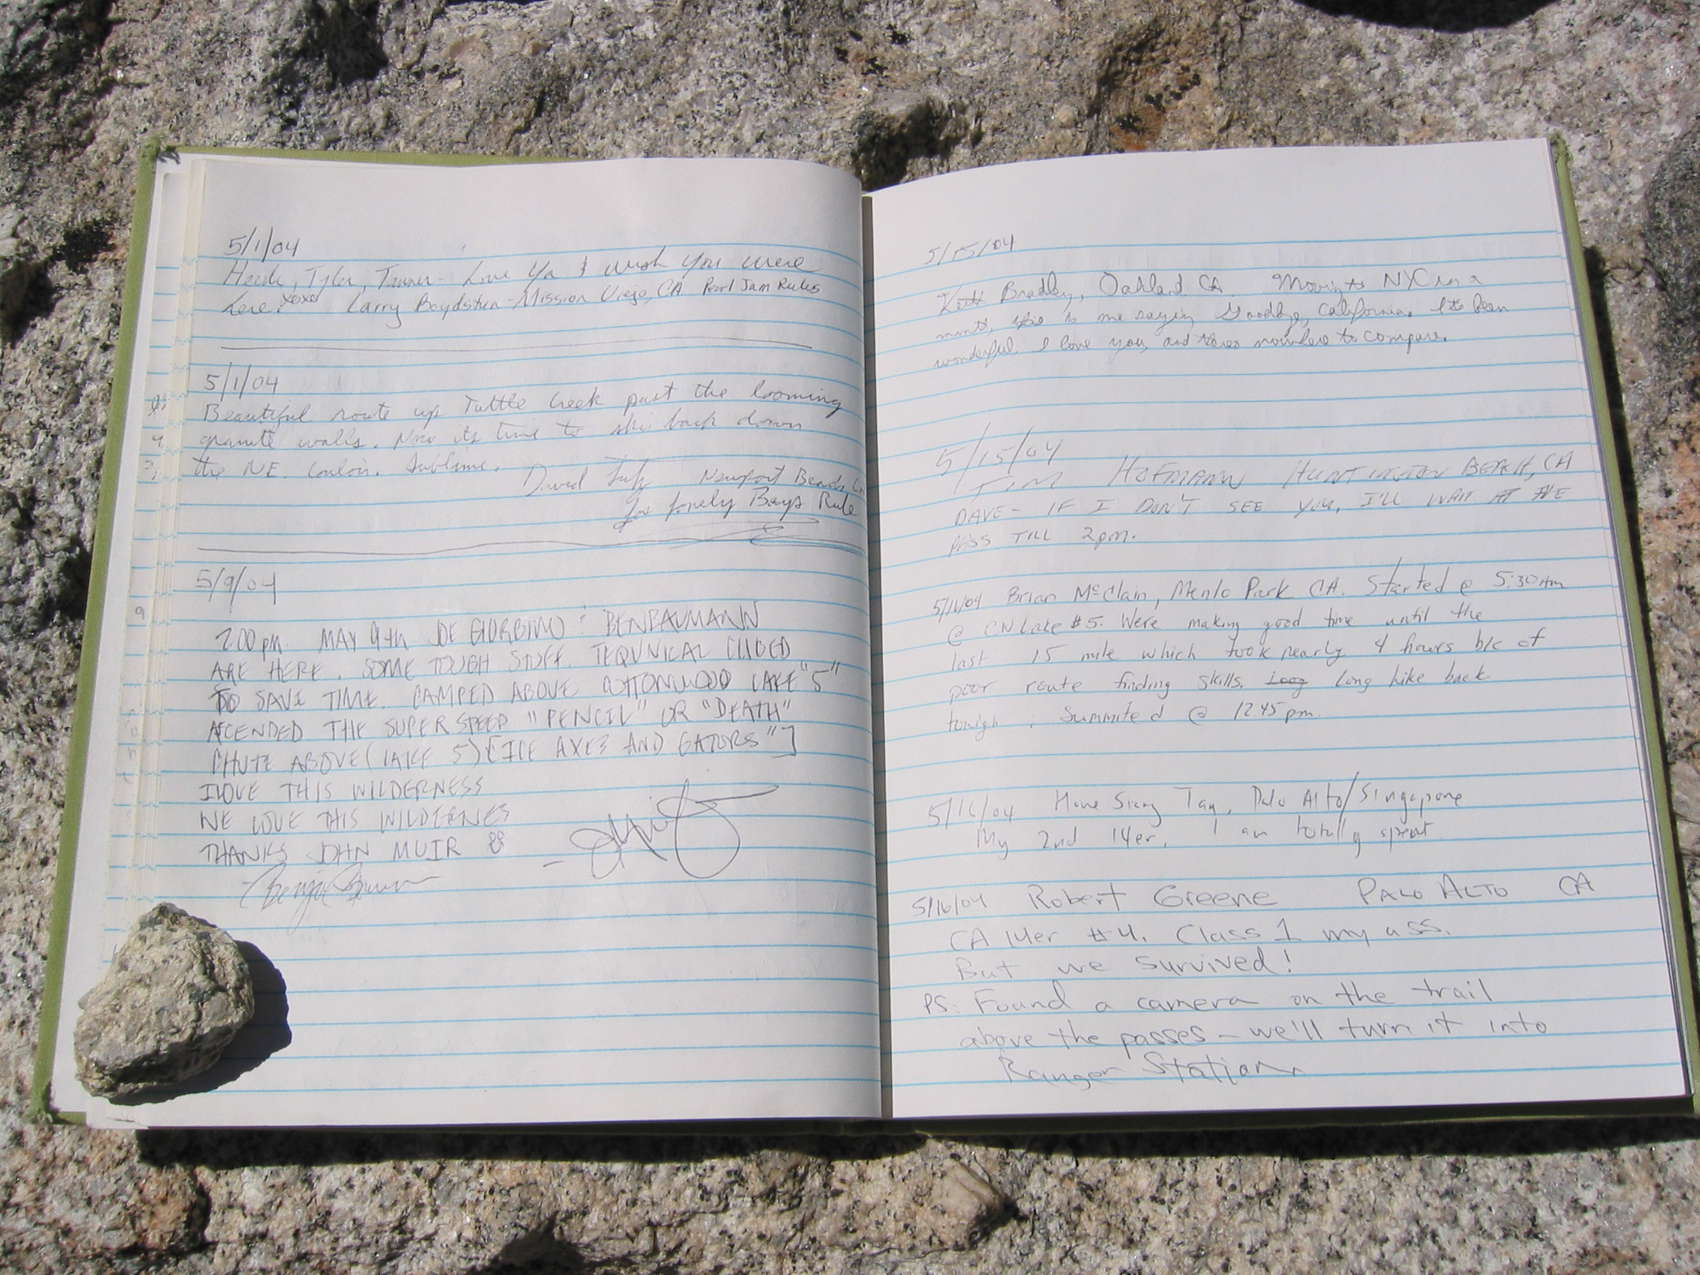 5/1/04
Heidi, Tyler, Tanner - Love Ya & wish you were
here. xoxo Larry Boydston - Mission Viejo, CA Pearl Jam Rules
5/1/04
Beautiful route up Tuttle Creek past the looming
granite walls. Now its time to ski back down
the NE. Couloir. Sublime.
David Newport Beach, Ca
Los Lonely Boys Rule
5/9/04
2:00 pm MAY 9th JOE GIORGINO : BENBAUMANN
ARE HERE. SOME TOUGH STUFF. TEQUNICAL CLIMBED
TO SAVE TIME. CAMPED ABOVE COTTONWOOD LAKE "5"
ACENDED THE SUPER SPEED "PENCIL" OR "DEATH"
CHUTE ABOVE (LAKE 5) [ICE AXES AND GATORS"]
I LOVE THIS WILDERNESS
WE LOVE THIS WILDERNES
THANKS JOHN MUIR
5/15/04
Bradley, Oakland CA Moving to NYC in a
month, this is me saying Goodbye, California. Its been
wonderful. I love you, and theres nowhere to compare.
5/15/04
TIM HOFMANN HUNTINGTON BEACH, CA
DAVE - IF I DON'T SEE YOU, I'LL WAIT AT THE
PASS TILL 2pm.
5/16/04 Brian McClain, Menlo Park CA. Started @ 5:30am
@ CN Lake #5. Were making good time until the
last 15 mile which took nearly 4 hours b/c of
poor route finding skills. Long hike back
tonigh. Summited @ 1245 pm.
5/16/04 How Siang Tay, Palo Alto/Singapore
My 2nd 14er. I am totally spent
5/16/04 Robert Greene PALO ALTO CA
CA 14er #4. Class 1 my ass.
But we survived!
PS: Found a camera on the trail
above the passes - we'll turn it into
Ranger Station.